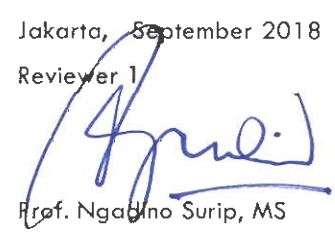 Jakarta, September 2018
Reviewer 1
Prof. Ngadino Surip, MS